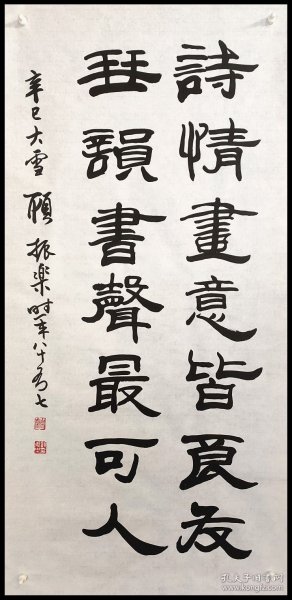 詩情畫意皆良友
琹韻書聲最可人
辛巳大雪 顧振樂時年八十有七
孔夫子旧书网
www.kongfz.com